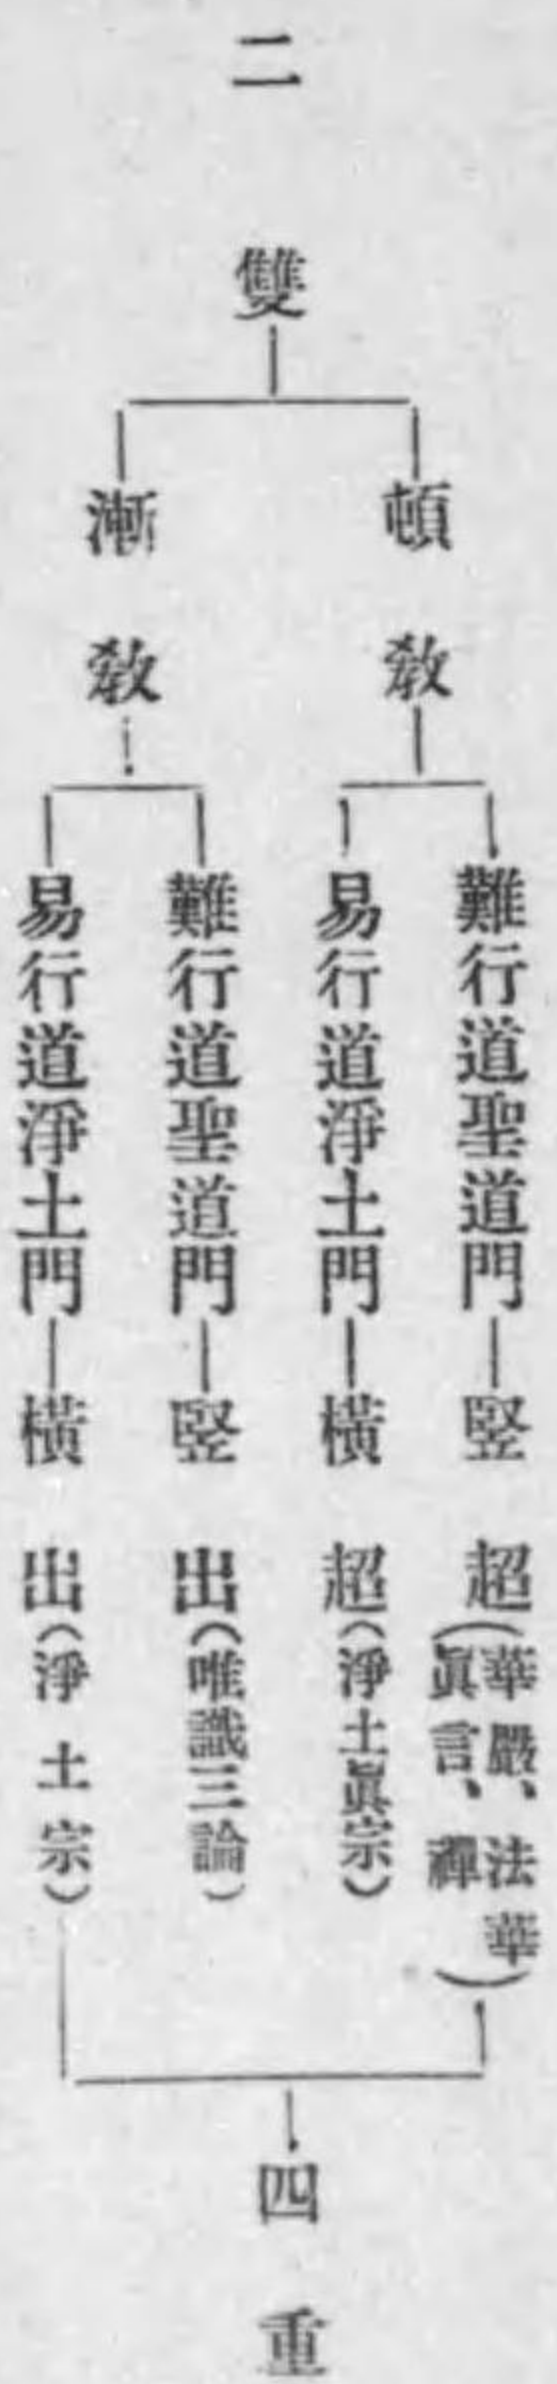 二雙
頓教
難行道聖道門
竪超
(華嚴、法華
眞言、禪)
易行道淨土門
橫超
(淨土眞宗)
漸教
難行道聖道門
竪出
(唯識三論)
易行道淨土門
橫出
(淨土宗)
四重